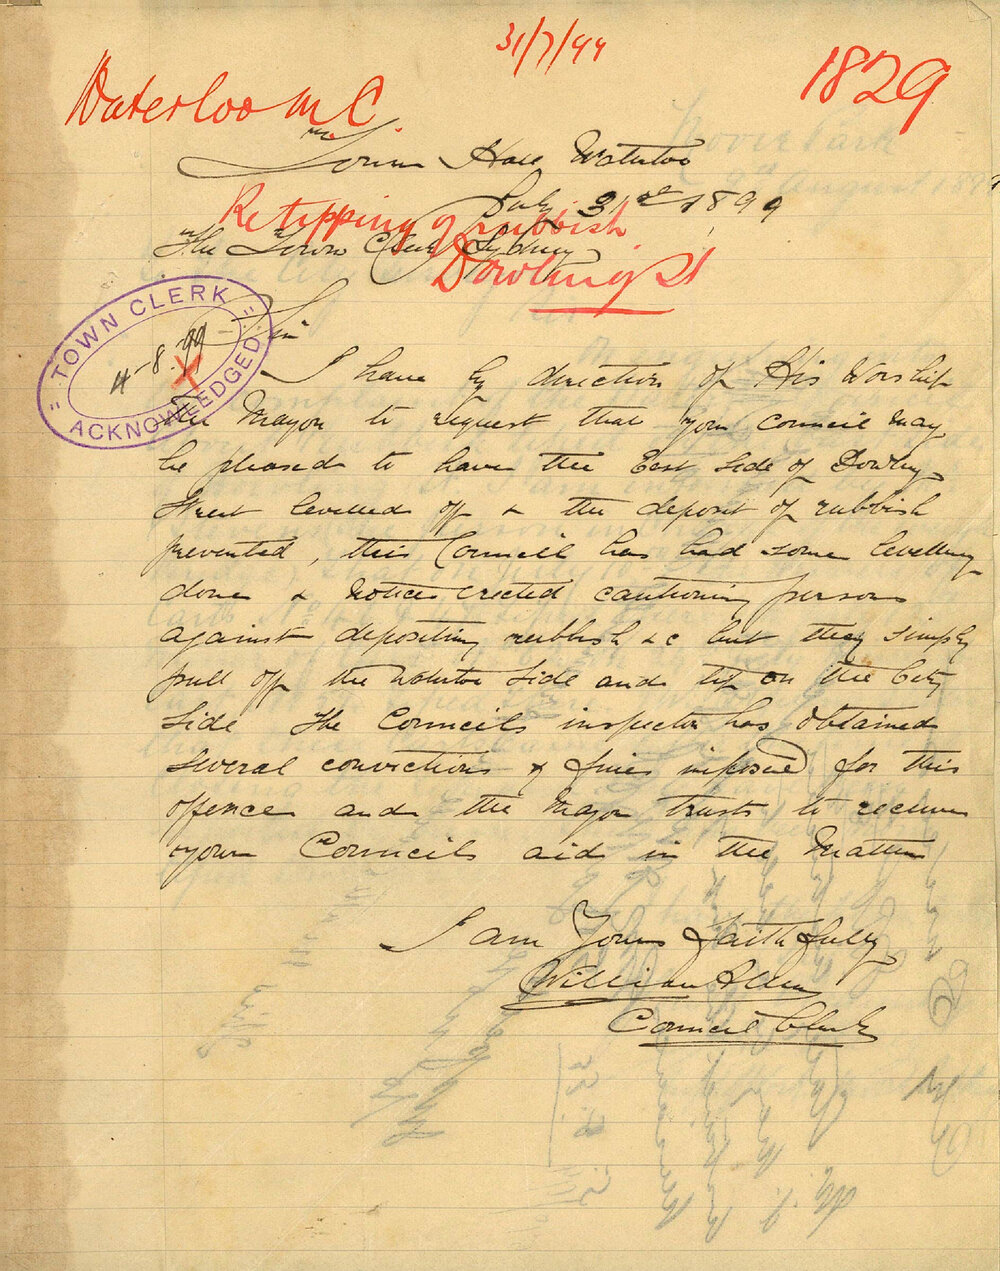 31/7/99
1829
Waterloo M.C.
Town Hall Waterloo
July 31st 1899
Re tipping of rubbish
Dowling St
The Town Clerk Sydney
TOWN CLERK
4-8-99
ACKNOWLEDGED
Sir
I have by direction of His Worship
The Mayor to request that your council may
be pleased to have the East side of Dowling
Street levelled off & the deposit of rubbish
prevented, this Council has had some levelling
done & Notices erected cautioning persons
against depositing rubbish &c but they simply
pull off the Waterloo Side and tip on the City
Side The Councils inspector has obtained
several convictions & fines imposed for this
offence and the Mayor trusts to receive
your Councils aid in the Matter
I am Yours Faithfully
William
Council Clerk